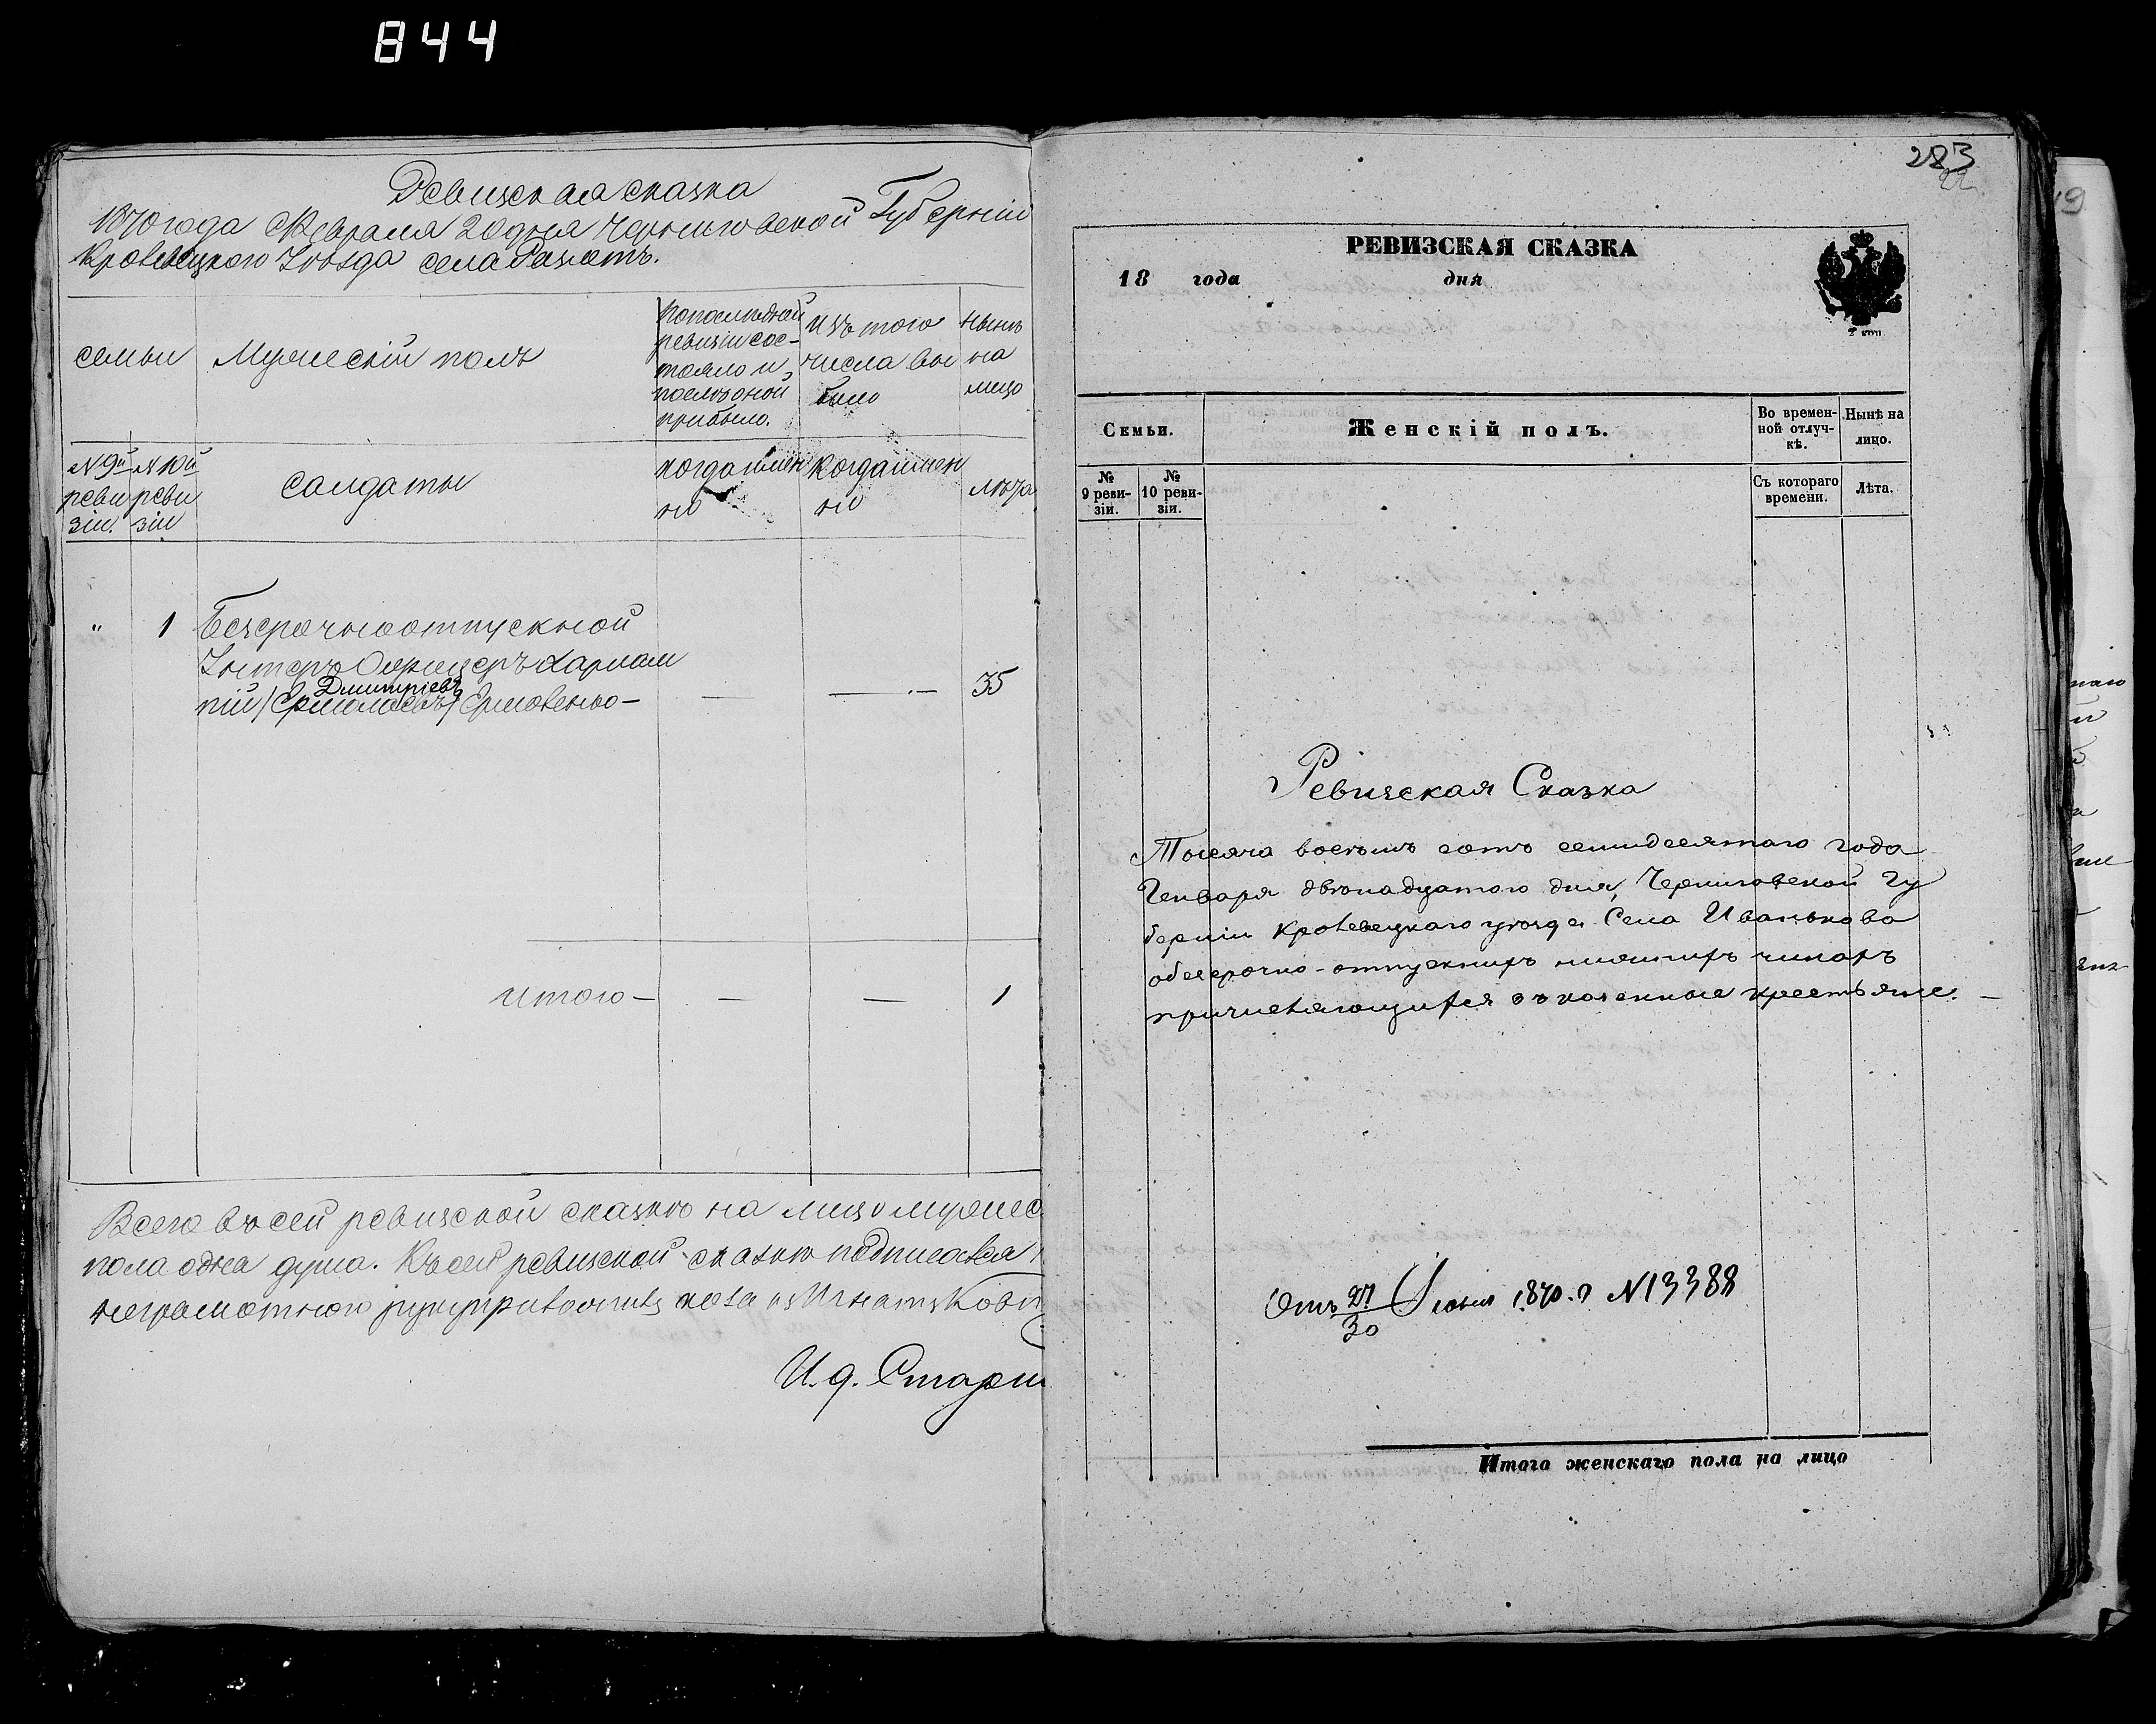 844
Ревизская сказка
1870 года Февраля 20 дня Черниговской Губерніи
Кролевецкого Уѣзда села
семьи
Мужескій полъ
По последней
ревизіи сос-
тояло и
послѣ оной
прибыло.
изъ того
числа вы
было
нынѣ
на
лицо
№ 9й
реви
зіи.
№ 10й
реви
зіи
солдаты
когда имен
но
когда имен
но
лѣта
" 1 Безсрочноотпускной
Унтеръ Офицеръ Харлам
Дмитріевъ
пій (Ермолаевъ) Ермоленко — — — 35
итого — — — 1
Всего въ сей ревизской сказкѣ на лицо мужес
пола одна душа. Къ сей ревизской сказкѣ подписался
неграмотною
И. д. Старши
283
22
РЕВИЗСКАЯ СКАЗКА
18 года дня
2 коп
Семьи.
Женскій полъ.
Во времен-
ной отлуч-
кѣ.
Нынѣ на
лицо.
№
9 реви-
зіи.
№
10 реви-
зіи.
Съ котораго
времени.
Лѣта.
Ревизская Сказка
Тысяча восемь сотъ семидесятаго года
Генваря двѣнадцатого дня, Черниговской Гу
берніи Кролевецкаго уѣзда Села Иванькова
о безсрочно-отпускныхъ нижнихъ чинахъ
причисляющихся въ казенные крестьяне. —
Отъ 27/30 Іюня 1870 г №13388
Итого женскаго пола на лицо